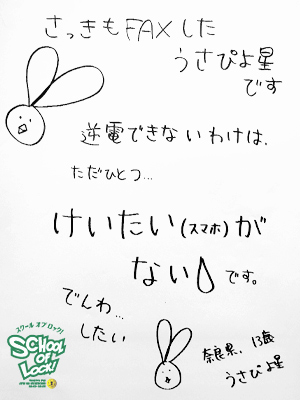 さっきもFAXした
うさぴよ星
です
逆電できないわけは、
ただひとつ…
けいたい(スマホ)が
ないです。
でんわ…
したい
スクール オブ ロック!
SCHOOL
OF
LOCK!
奈良県、13歳
うさぴよ星